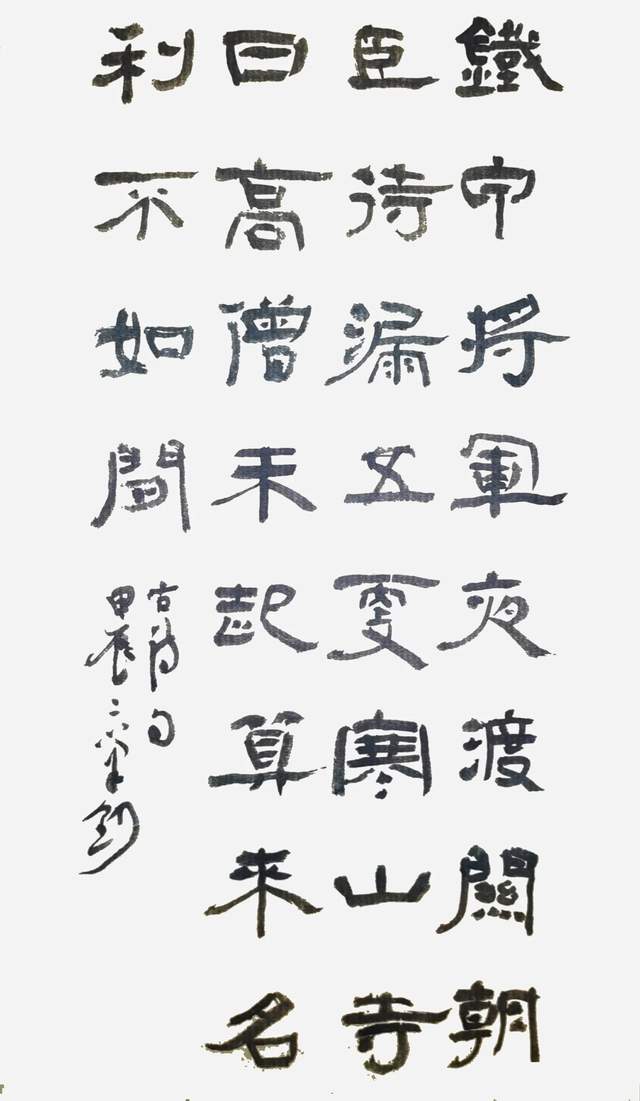 鐵甲將軍夜渡關朝
臣待漏五更寒山寺
日高僧未起算來名
利不如間
古詩句
甲辰